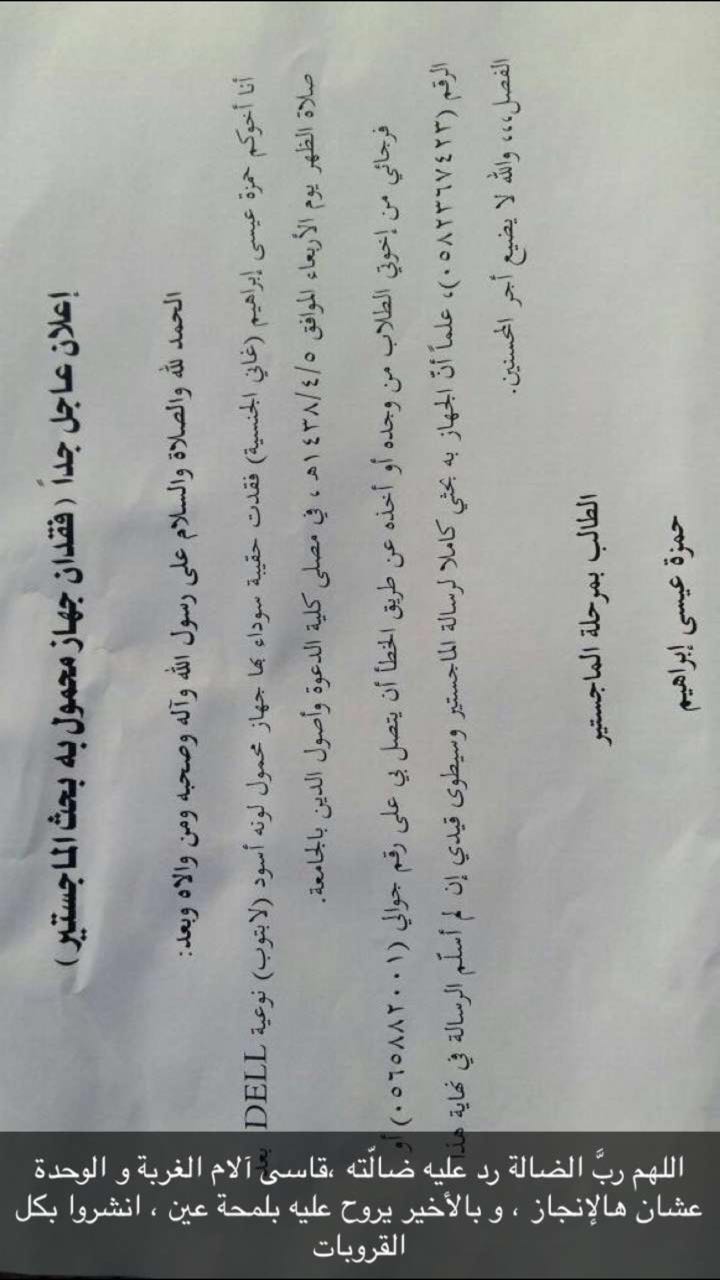 إعلان عاجل جداً ( فقدان جهاز محمول به بحث الماجستير )
الحمد لله والصلاة والسلام على رسول الله وآله وصحبه ومن والاه وبعد:
أنا أخوكم حمزة عيسى إبراهيم (غاني الجنسية) فقدت حقيبة سوداء بها جهاز محمول لونه أسود (لابتوب) نوعية DELL بعد
صلاة الظهر يوم الأربعاء الموافق ١٤٣٨/٤/٥هـ ، في مصلى كلية الدعوة وأصول الدين بالجامعة.
فرجائي من إخوتي الطلاب من وجده أو أخذه عن طريق الخطأ أن يتصل بي على رقم جوالي (٠٥٦٥٨٨٢٠٠١) أو
الرقم (٠٥٨٢٣٦٧٤٢٣)، علماً أنّ الجهاز به بحثي كاملا لرسالة الماجستير وسيطوى قيدي إن لم أسلّم الرسالة في نهاية هذا
الفصل،،،، والله لا يضيع أجر المحسنين.
الطالب بمرحلة الماجستير
حمزة عيسى إبراهيم
اللهم ربَّ الضالة رد عليه ضالّته ،قاسى آلام الغربة و الوحدة
عشان هالإنجاز ، و بالأخير يروح عليه بلمحة عين ، انشروا بكل
القروبات